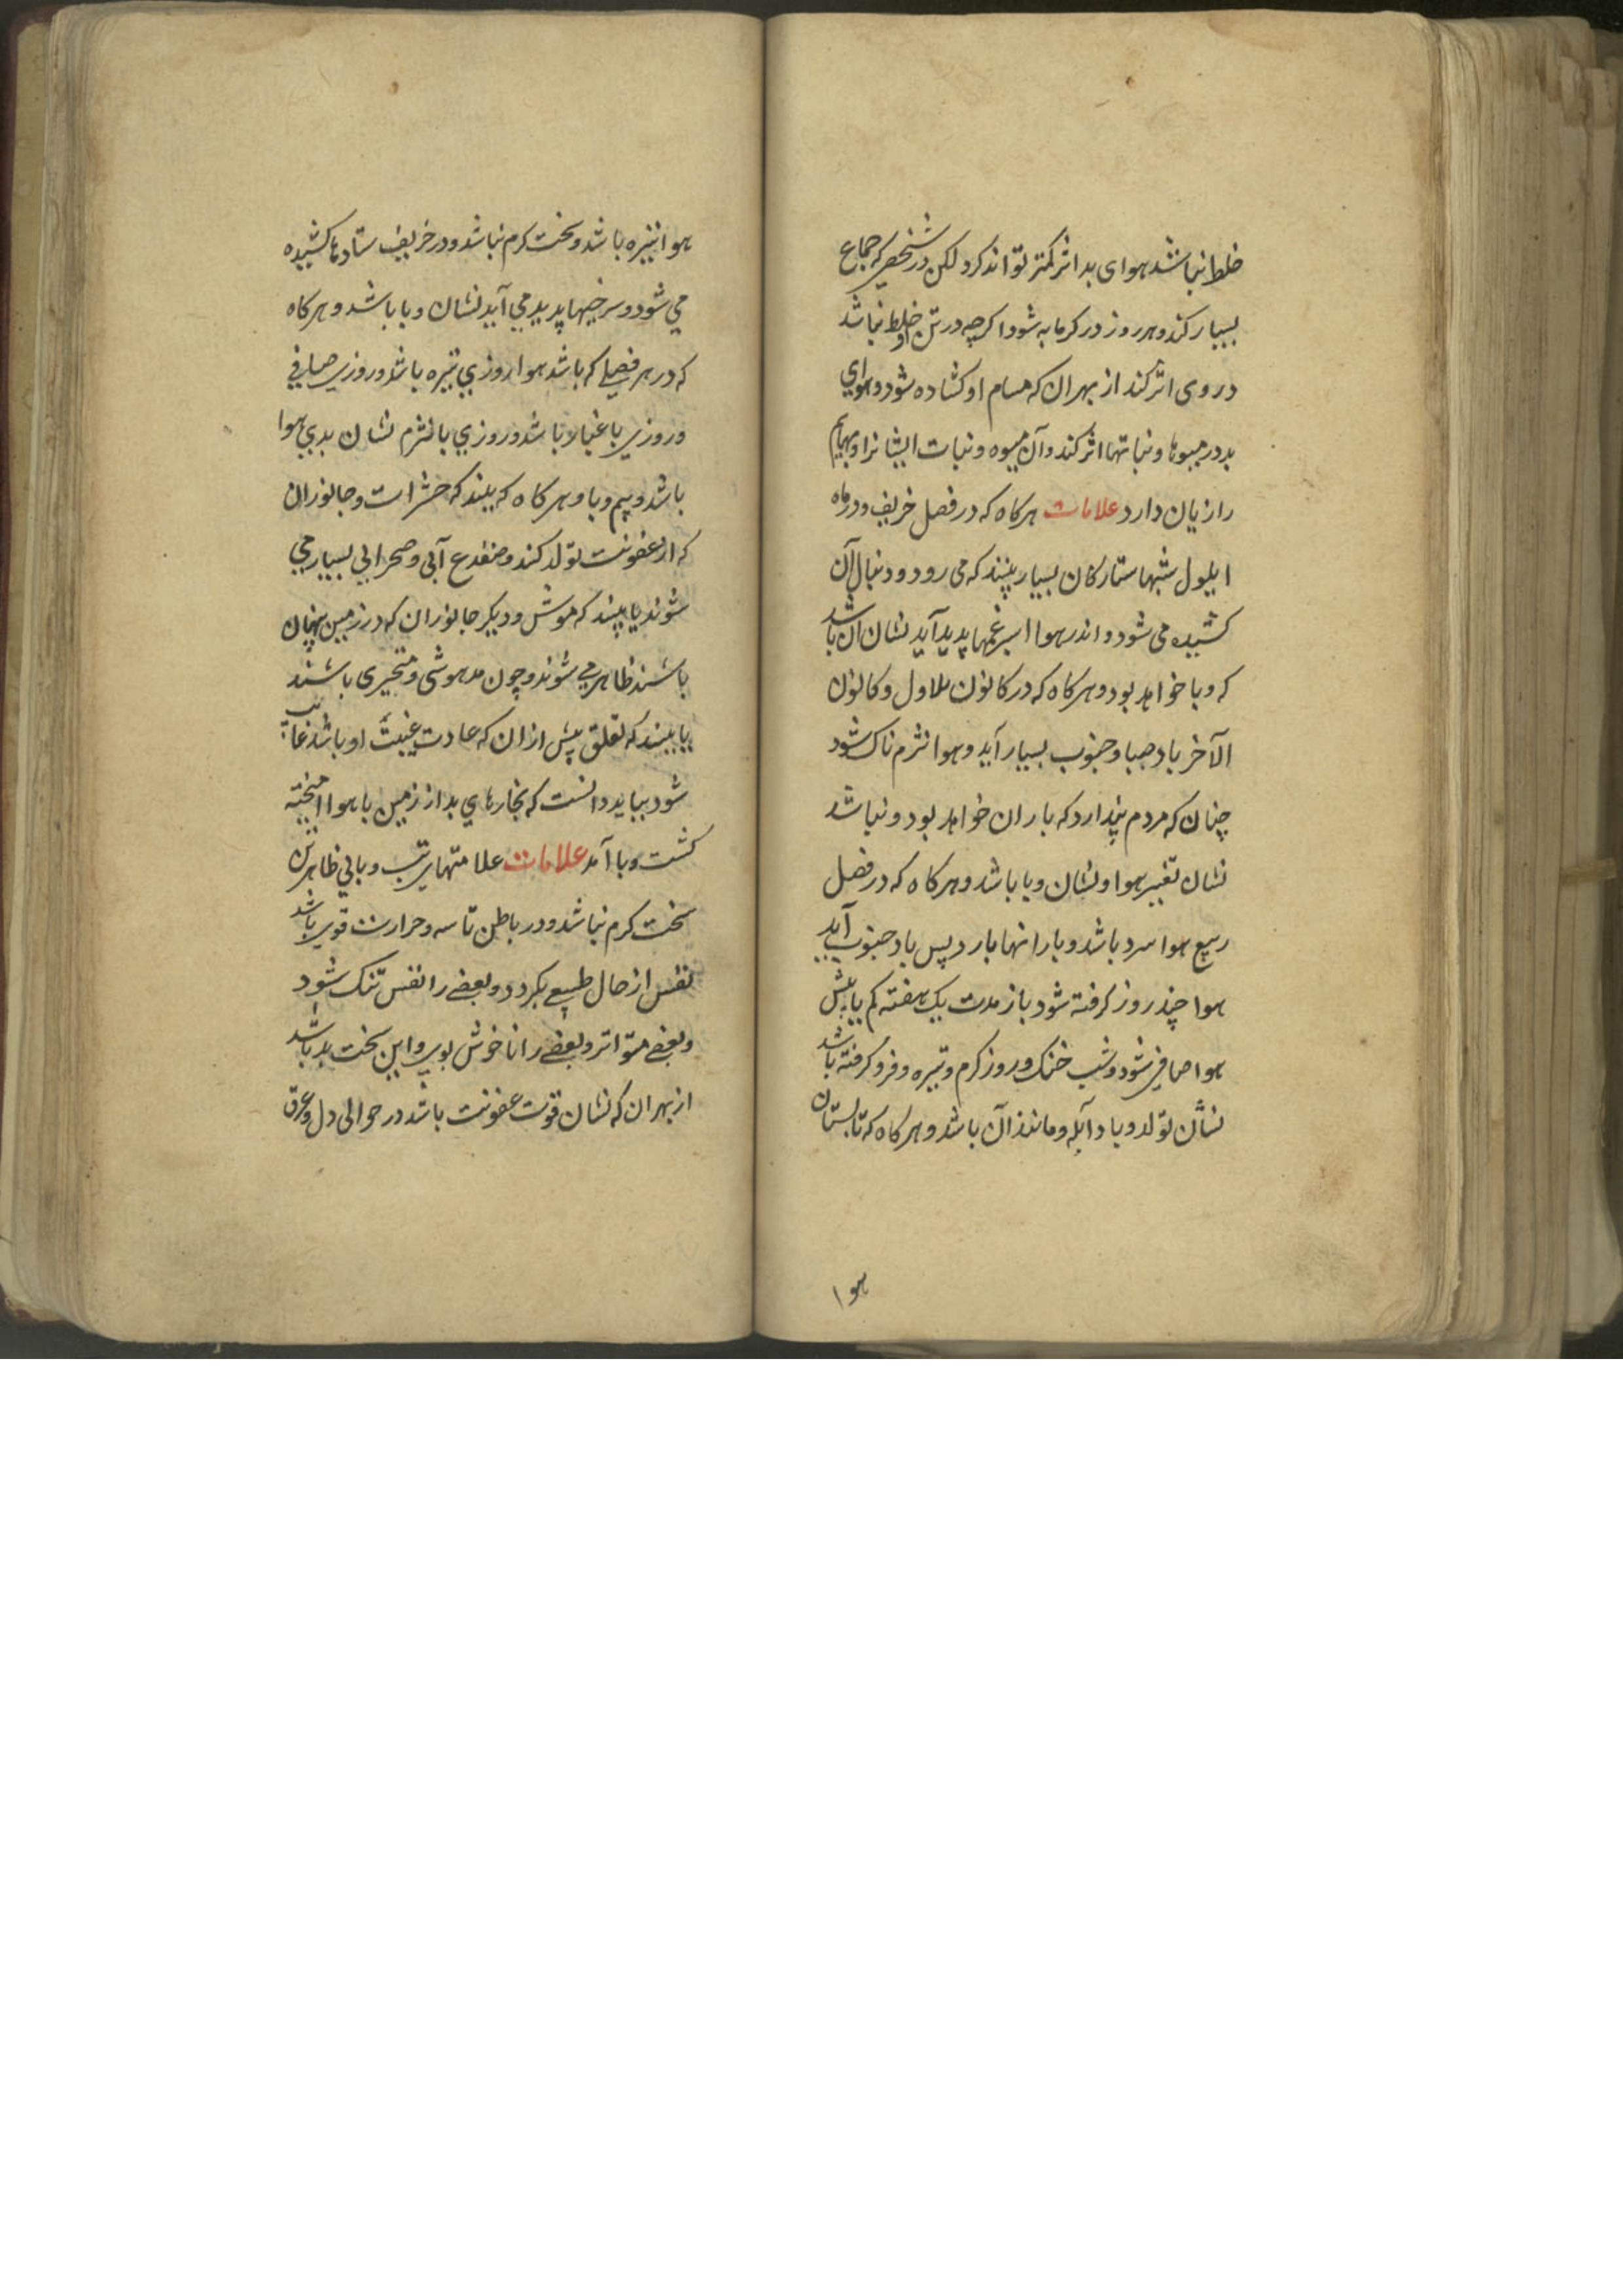 خلط نباشد هوای بد اثر کمتر تواند کرد لکن در شخصی که جماع
بسیار کند و هر روز در کرمابه شود اکرچه در تن او خلط نباشد
در وی اثر کند از بهر ان که مسام او کشاده شود و هوای
بد در میوها و نباتها اثر کند و آن میوه و نبات ایشانرا و بهایم
را زیان دارد علامات هرکاه که در فصل خریف و در ماه
ایلول شبها ستارکان بسیار بینند که می رود و دنبال آن
کشیده می شود و اندر هوا اسرغیها پدید آید نشان آن باشد
که وبا خواهد بود و هرکاه که در کانون الاول و کانون
الآخر باد صبا و جنوب بسیار آید و هوا نژم ناک شود
چنان که مردم پندارد که باران خواهد بود و نباشد
نشان تغییر هوا و نشان وبا باشد و هرکاه که در فصل
ربیع هوا سرد باشد و بارانها بارد پس باد جنوب آید
هوا چند روز کرفته شود باز مدت یک هفته کم یا بیش
هوا صافی شود و شب خنک و روز کرم و تیره و فرو کرفته باشد
نشان تولد وبا و آبله و مانند آن باشد و هرکاه که تابستان
هوا
هوا تیره باشد و سخت کرم نباشد و در خریف ستادها کشیده
می شود و سرخیها پدید می آید نشان وبا باشد و هرکاه
که در هر فصلی که باشد هوا روزی تیره باشد و روزی صافی
و روزی با غبار باشد و روزی با نژم نشان بدی هوا
باشد و بیم وبا و هرکاه که بینند که حشرات و جانوران
که از عفونت تولد کند و ضفدع آبی و صحرایی بسیار می
شوند یا بینند که موش و دیکر جانوران که در زمین پنهان
باشند ظاهر می شوند و چون مدهوشی و متحیری باشند
یا بینند که لقلق پیش از ان که عادت غیبت او باشد غایب
شود بباید دانست که بخارهای بد از زمین با هوا امیخته
کشت و وبا آمد علامات علامتهای تب وبایی ظاهر تن
سخت کرم نباشد و در باطن تاسه و حرارت قوی باشد
نفس از حال طبیعی بکردد و بعضی را نفس تنک شود
و بعضی متواتر و بعضی را ناخوش بوی و این سخت بد باشد
از بهر ان که نشان قوت عفونت باشد در حوالی دل و عرق